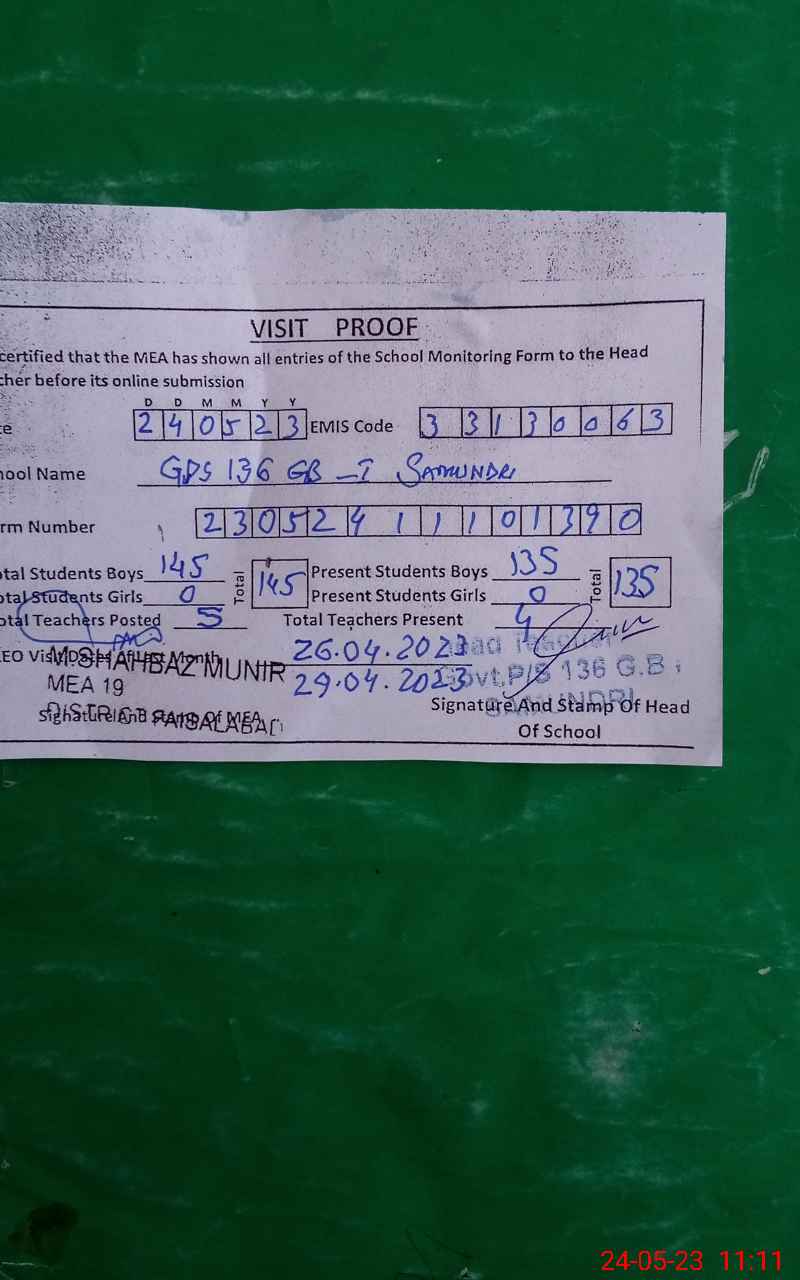 VISIT PROOF
certified that the MEA has shown all entries of the School Monitoring Form to the Head
cher before its online submission
D D M M Y Y
te 2 4 0 5 2 3 EMIS Code 3 3 1 3 0 0 6 3
hool Name GPS 136 GB-I SAMUNDRI
rm Number 2 3 0 5 2 4 1 1 1 0 1 3 9 0
otal Students Boys 145 Total 145 Present Students Boys 135 Total 135
otal Students Girls 0 Present Students Girls 0
otal Teachers Posted 5 Total Teachers Present 4
26.04.2023
M.SHAHBAZ MUNIR 29.04.2023 Govt.P/S 136 G.B
MEA 19
SAMUNDRI
Signature And Stamp Of Head
DISTRICT FAISALABAD
Signature And Stamp Of MEA
Of School
24-05-23 11:11